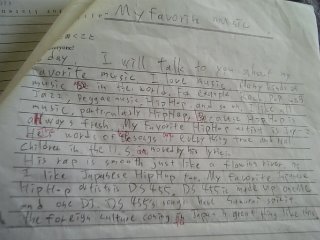 My favorite music
everyone!
day. I will talk to you about my
favorite music. I love music. Many kinds of
music in the world. For example rock, R&B,
Jazz, Reggae music, HipHop and so on. I like all
music, particularly HipHop, Because HipHop is
always fresh. My favorite HipHop artist is
He words of songs everything true and real
children in the U.S. moved by his lyrics
His rap is smooth just like a flowing river
I like Japanese HipHop too. My favorite Japanese
HipHop artist is DS 455. DS 455 is made up one MC
and one DJ. DS 455's songs have spirit
The foreign culture coming in Japan great thing like this